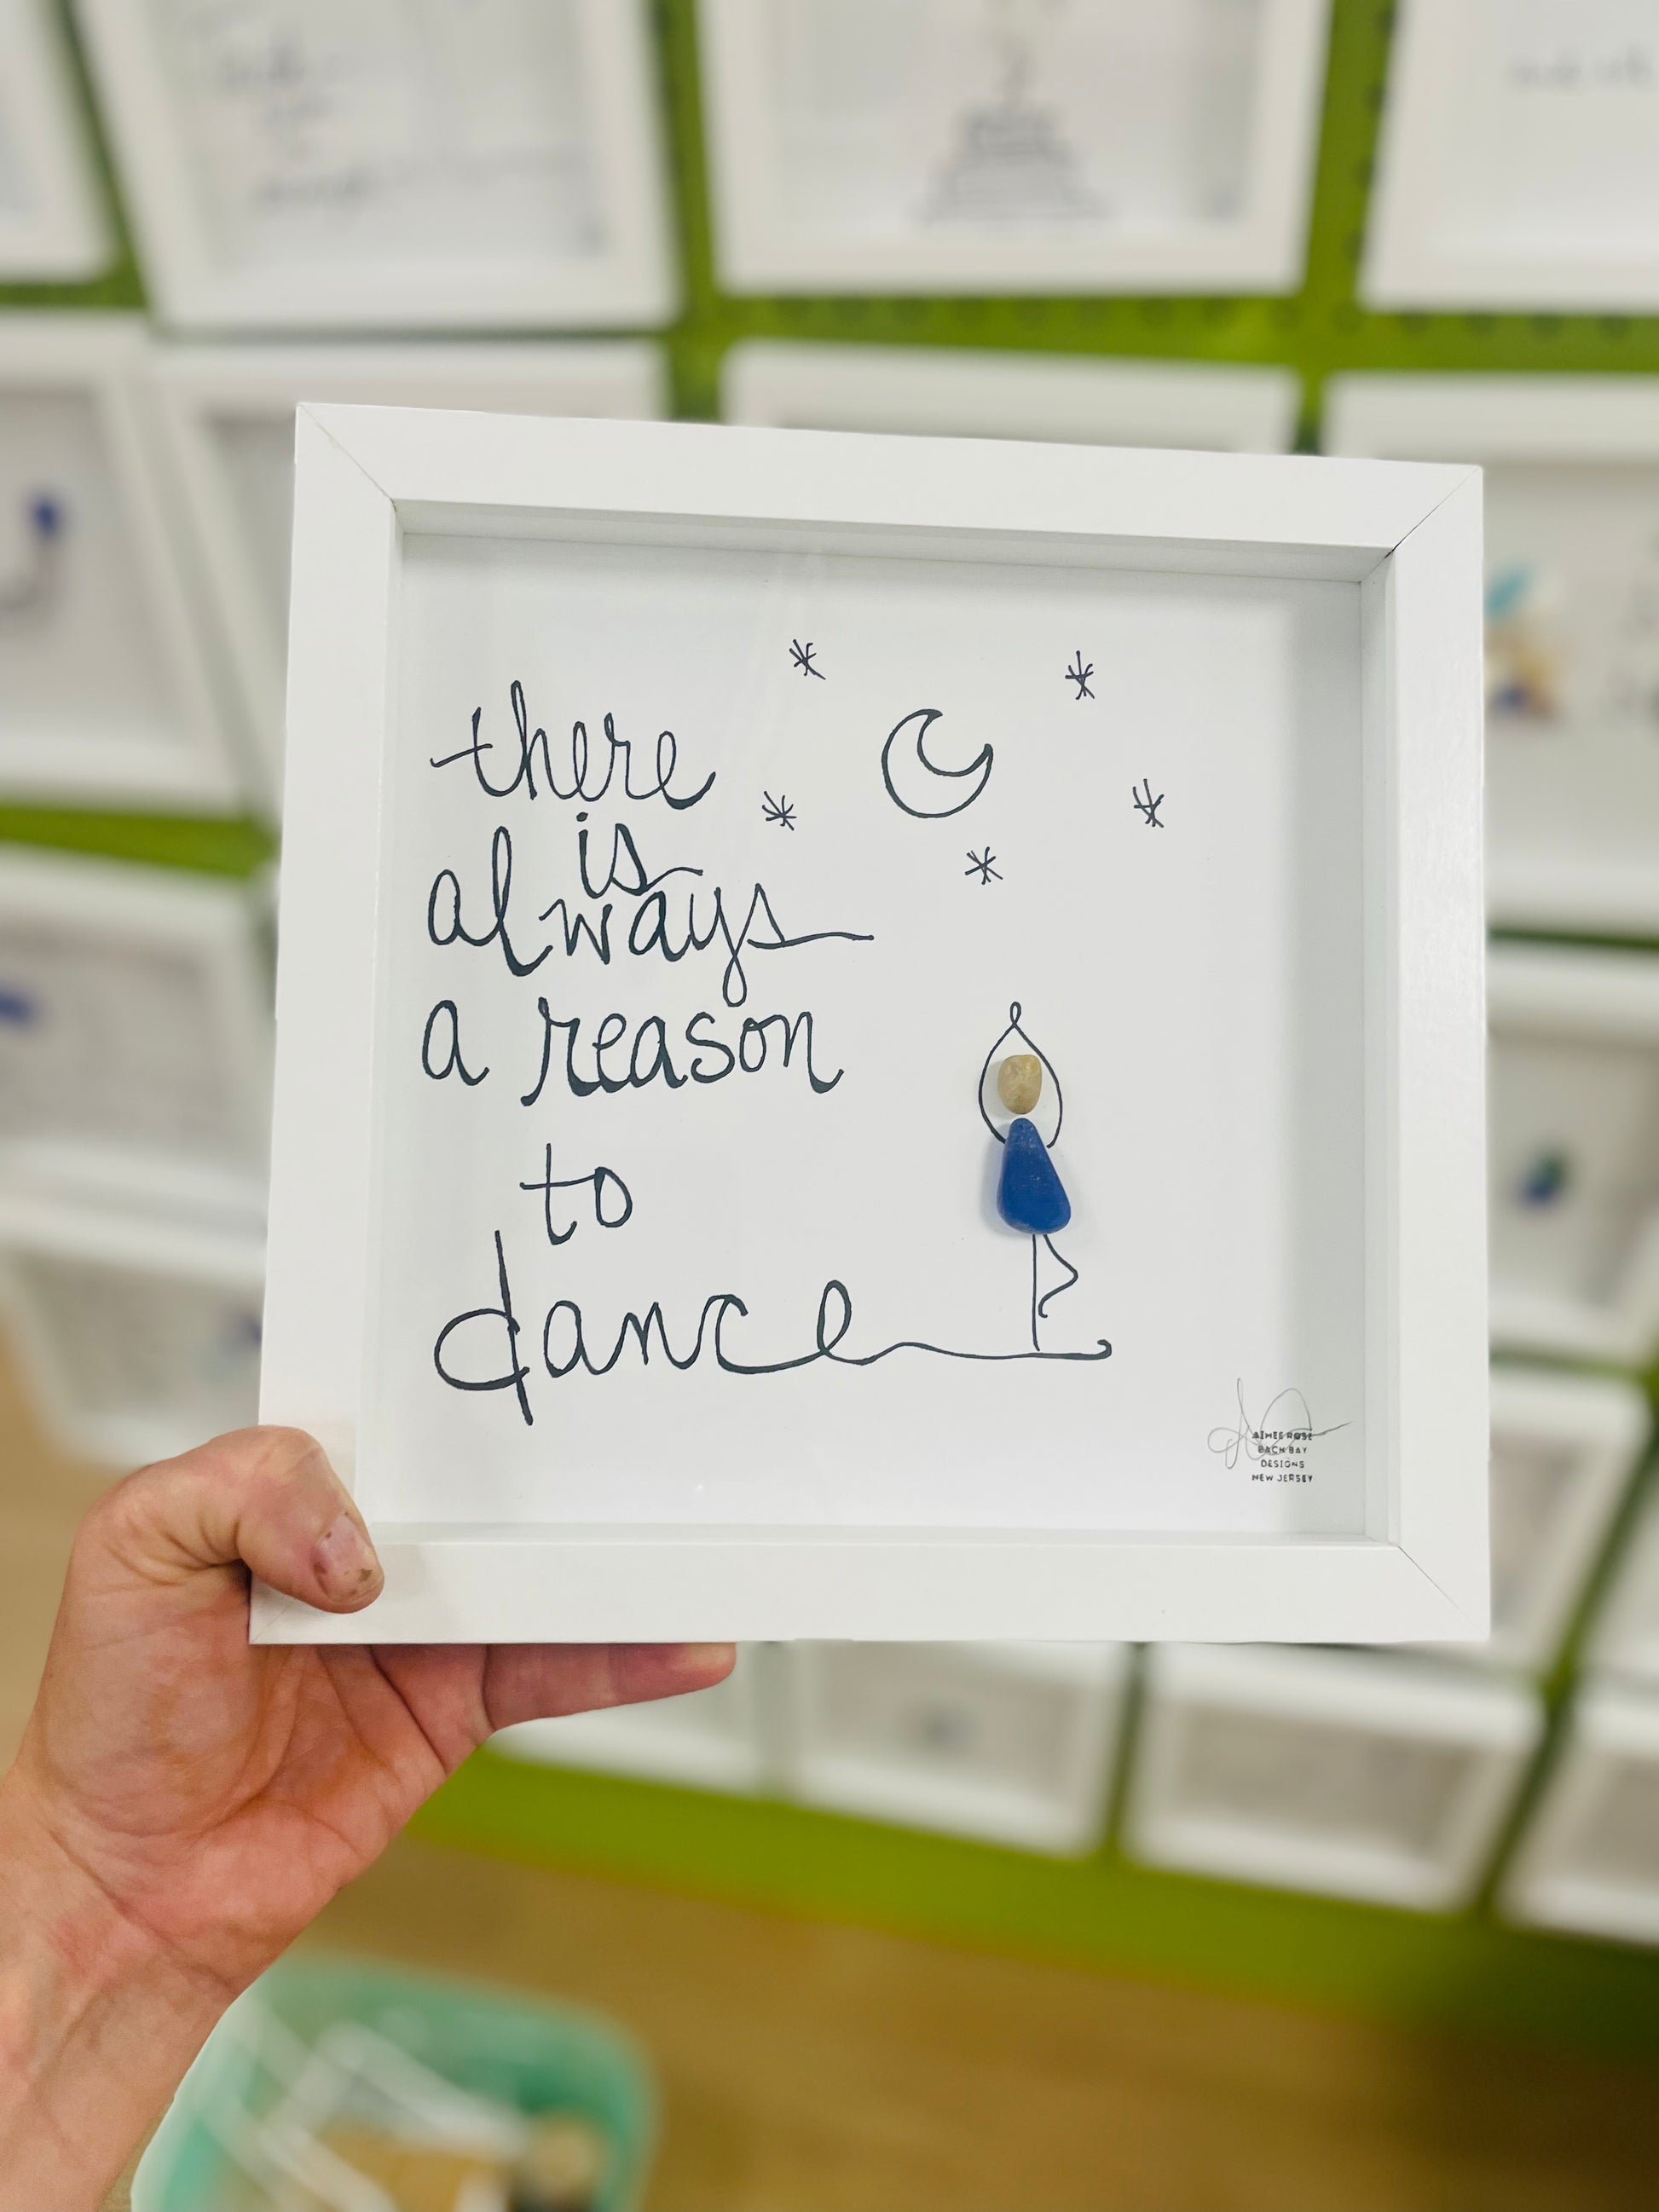 there
is
always
a reason
to
dance
AIMEE ROSE
BACH BAY
DESIGNS
NEW JERSEY